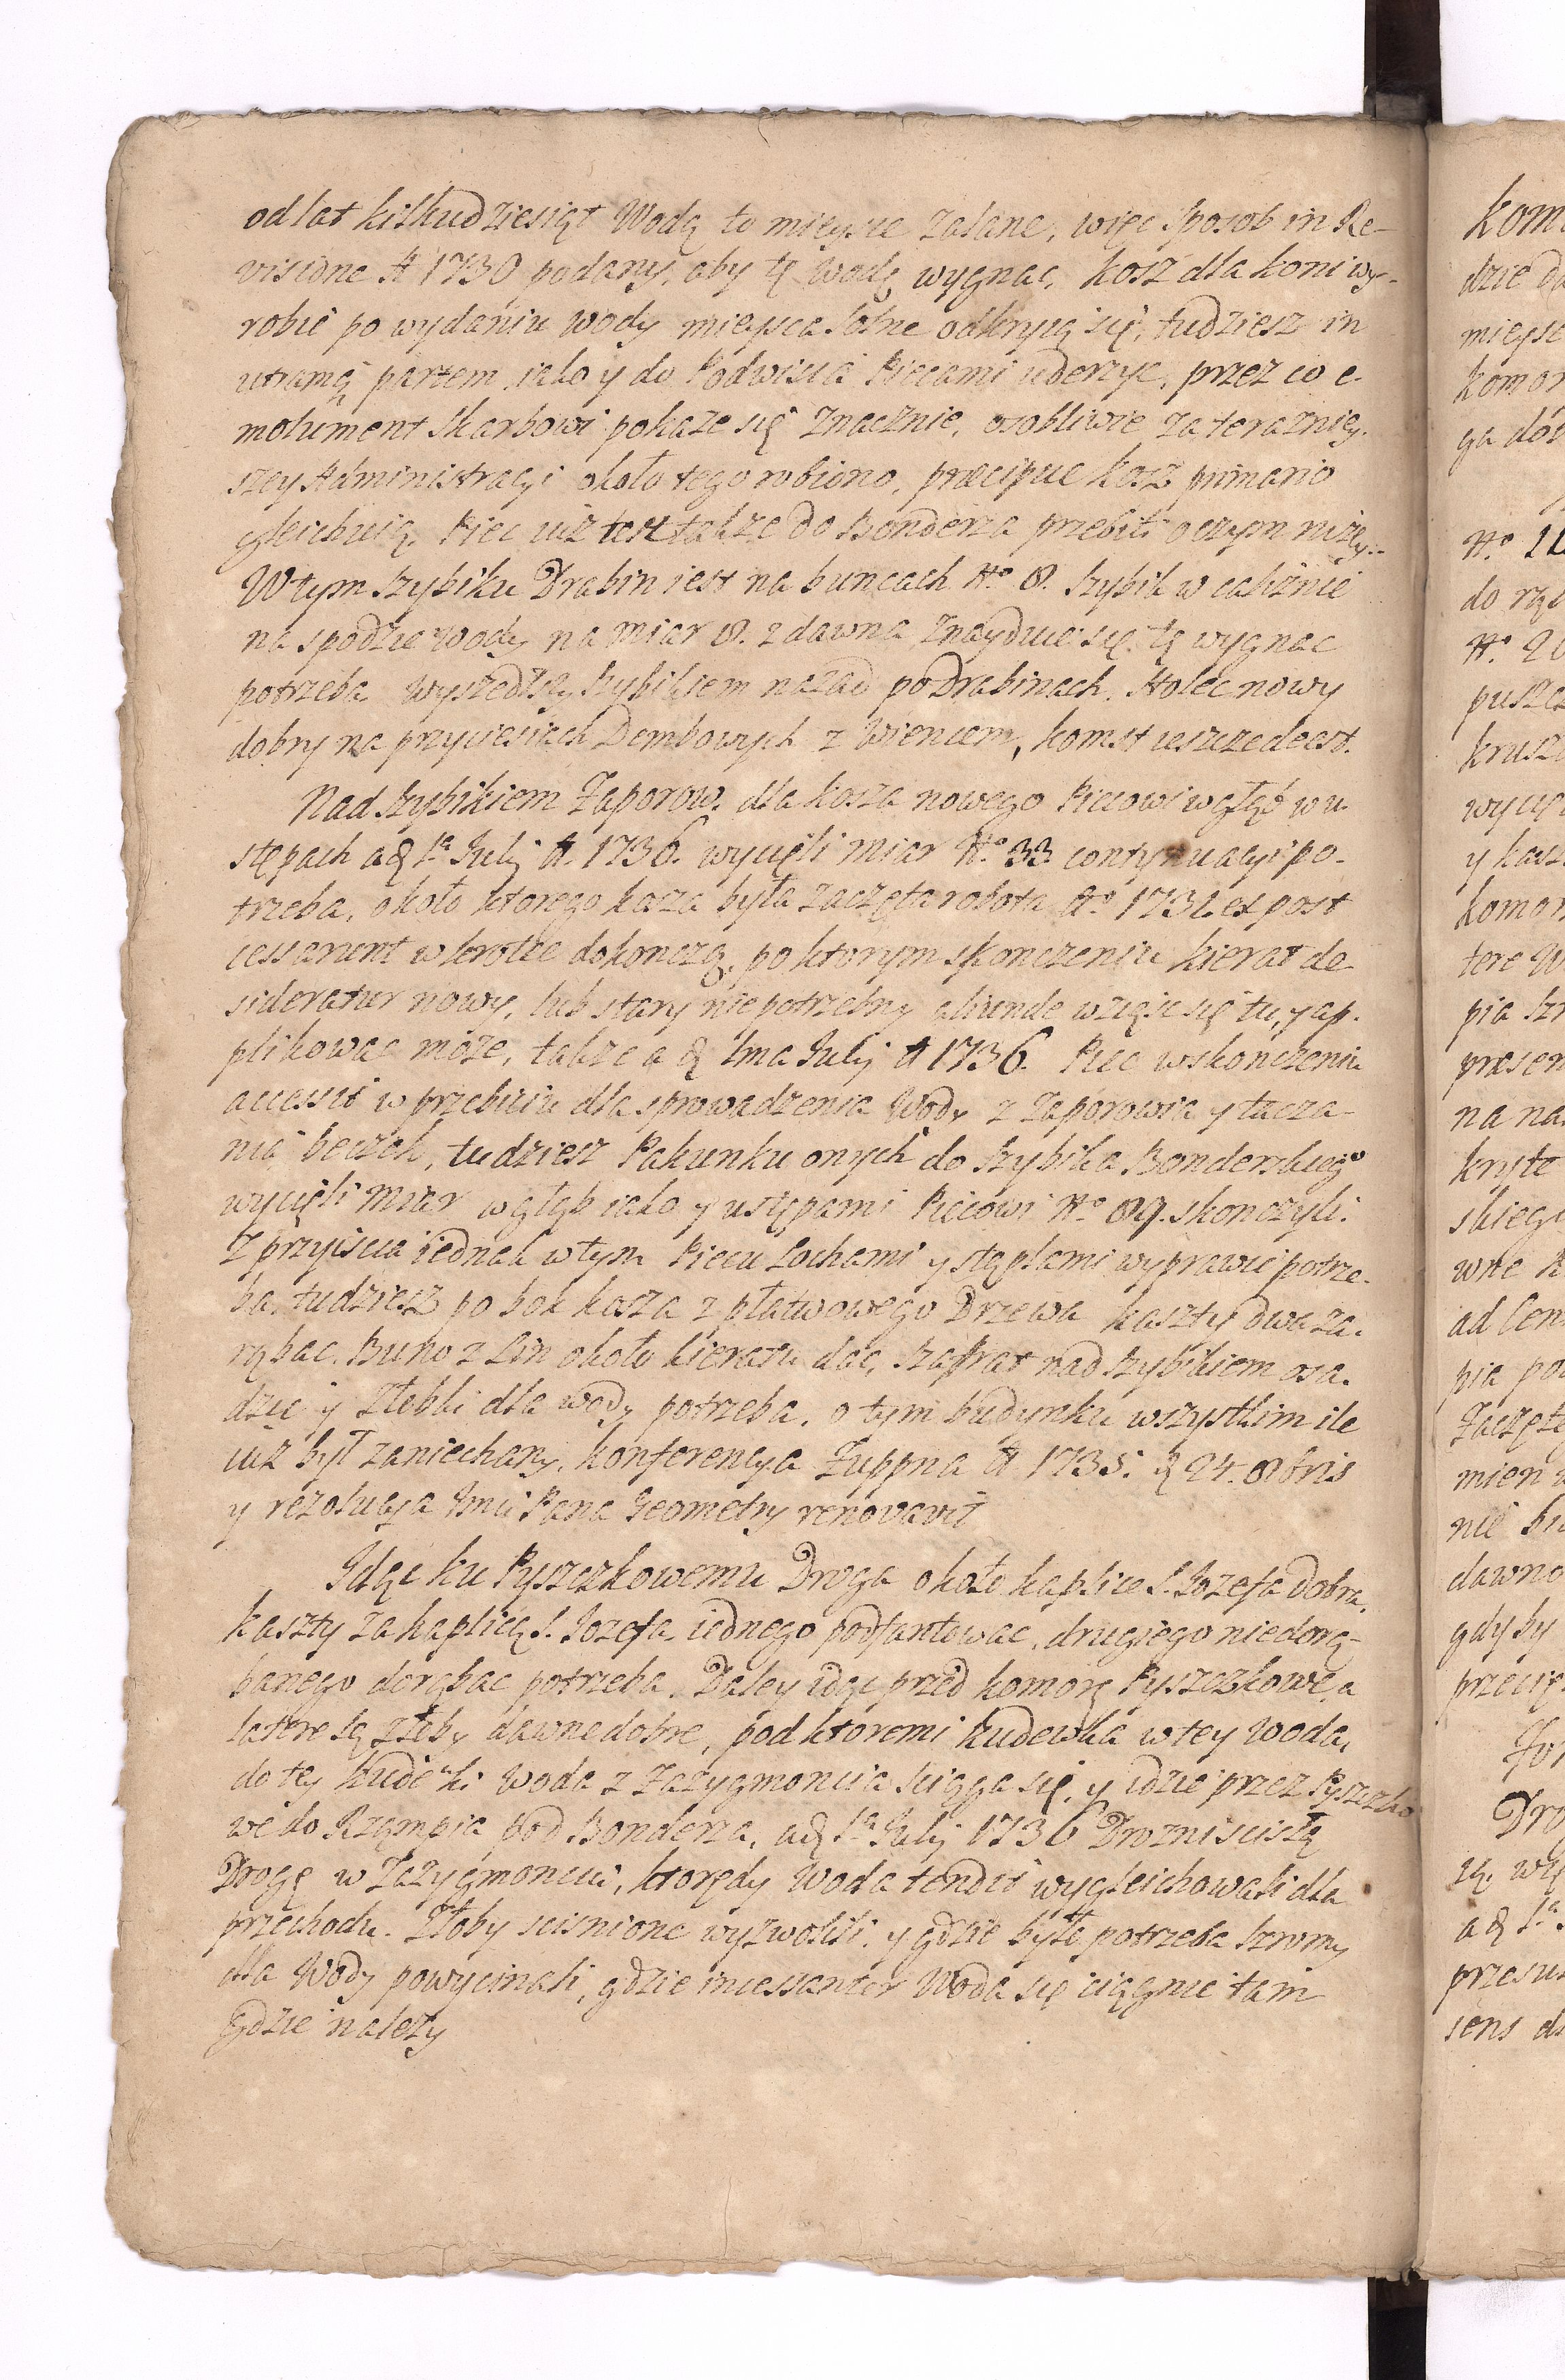 od lat kilkudziesiąt Wodą to mieysce zalane, więc sposob in Re-
visione A 1730 podany, aby tę wodę wygnac, kosz dla koni wy-
robić po wydaniu wody mieysca solne odkryią się, tudziesz in
utramq partem iako y do Podwisia Piecami uderzyc, przez co e-
molument Skarbowi pokaze się znacznie, osobliwie za terazniey-
szey Administracyi około tego robiono, præcipue kosz primario
gleichuią. Piec iuz test takze do Bonderza przebili o czym nizey.
W tym Szybiku Drabin iest na buncach No 8. Szybik w caliznie
na spodzie wody na miar 8. zdawna znayduie się, tę wygnac
potrzeba wyszedszy Szybikiem nazad po Drabinach. Stolec nowy
dobry na przyciesiach Dembowych z Wiencem, komst ieszcze deest.
Nad Szybikiem Zaporow. dla kosza nowego Piecowi wgłąb w u-
stępach a d 1a Julij A. 1736. wycięli miar No 33. contynuacyi po-
trzeba, około ktorego kosza była zaczęta robota Ao 1731. et post
cessarunt wkrotce dokonczą, po ktorym skonczeniu kierat de
sideratur nowy, lub stary niepotrzebny aliunde wziąść się tu, y ap-
plikowac może, takze a d 1ma Julij A 1736. Piec wskonczeniu
accessit w przebiciu dla sprowadzenia Wody z Zaporowia y tacza-
nia beczek, tudziesz Pakunku onych do Szybika Bonderskiego
wycięli Miar w głąb iako y ustępami Piecowi No 89. skonczyli.
Z przyiscia iednak w tym Piecu Lochami y stęplami wyprawic potrze-
ba, tudziesz po bok kosza z płatwowego Drzewa kaszty dwa za-
rąbac. Buno z Lin około kieratu dac, szafrat nad Szybikiem osa-
dzic y Żlebki dla wody potrzeba, o tym budynku wszystkim ile
iuz był zaniechany, konferencya Żuppna A 1735. d 24. 8bris
y rezolucya Jmci Pana Geometry renovavit
Idąc ku Pyszczkowemu Droga około kaplice S. Jozefa dobra,
kaszty za kaplicą S. Jozefa iednego podfantowac, drugiego niedorą-
banego dorąbac potrzeba. Daley idąc przed komorę Pyszczkowe, a
latere są żłoby dawne dobre, pod ktoremi kudewka w tey woda,
do tey kudewki woda z Zazygmoncia sciąga się, y idzie przez Pyszczko
we do Rząmpia pod Bonderza, a d 1a Julij 1736 Drozni scisłą
Drogę w Zazygmonciu, ktorędy woda tendit wygleichowali dla
przechodu. Żłoby scisnione wyzwolili, y gdzie było potrzeba szramy
dla Wody powycinali, gdzie incessanter Woda się ciągnie tam
gdzie nalezy